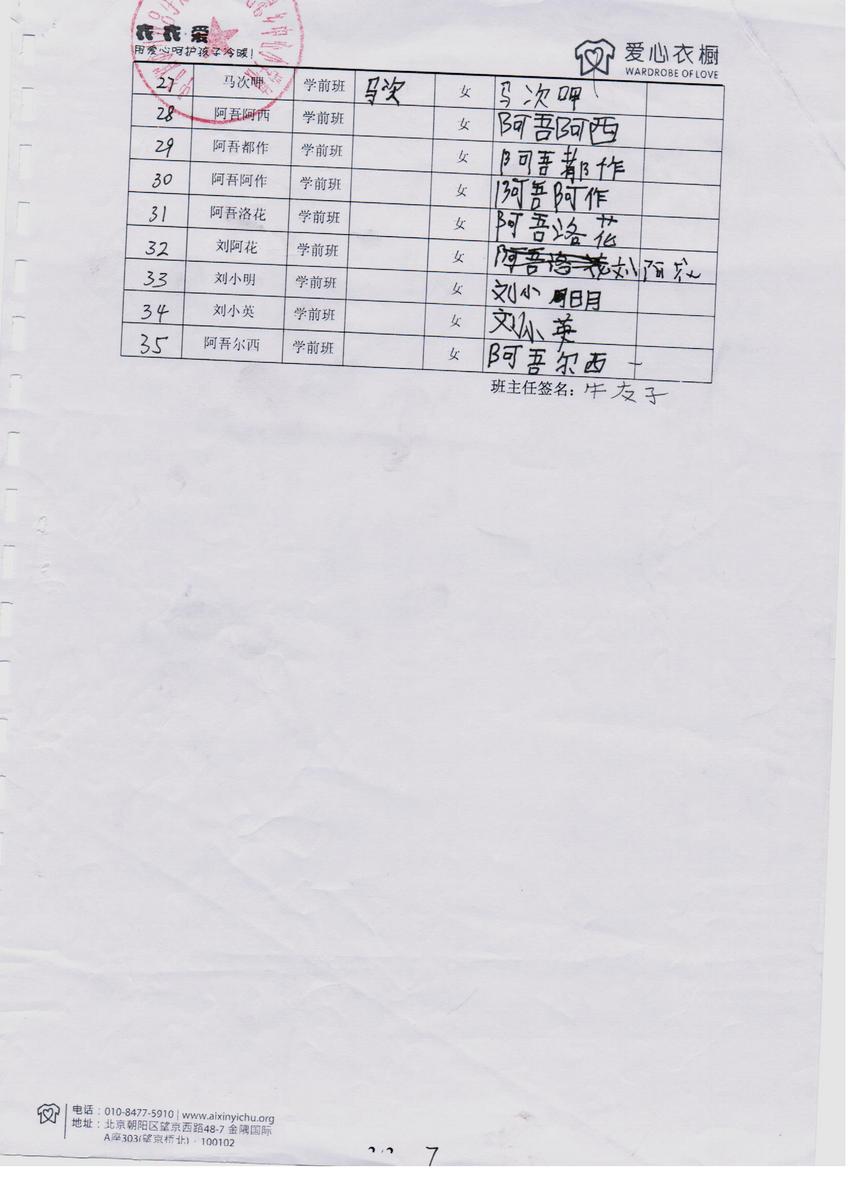 衣衣·爱
用爱心呵护孩子冷暖!
爱心衣橱
WARDROBE OF LOVE
27 马次呷 学前班 马次 女 马次呷
28 阿吾阿西 学前班 女 阿吾阿西
29 阿吾都作 学前班 女 阿吾都作
30 阿吾阿作 学前班 女 阿吾阿作
31 阿吾洛花 学前班 女 阿吾洛花
32 刘阿花 学前班 女 阿吾洛花 刘阿花
33 刘小明 学前班 女 刘小明
34 刘小英 学前班 女 刘小英
35 阿吾尔西 学前班 女 阿吾尔西
班主任签名: 牛友子
电话:010-8477-5910 | www.aixinyichu.org
地址:北京朝阳区望京西路48-7 金隅国际
A座303(望京桥北)·100102
7